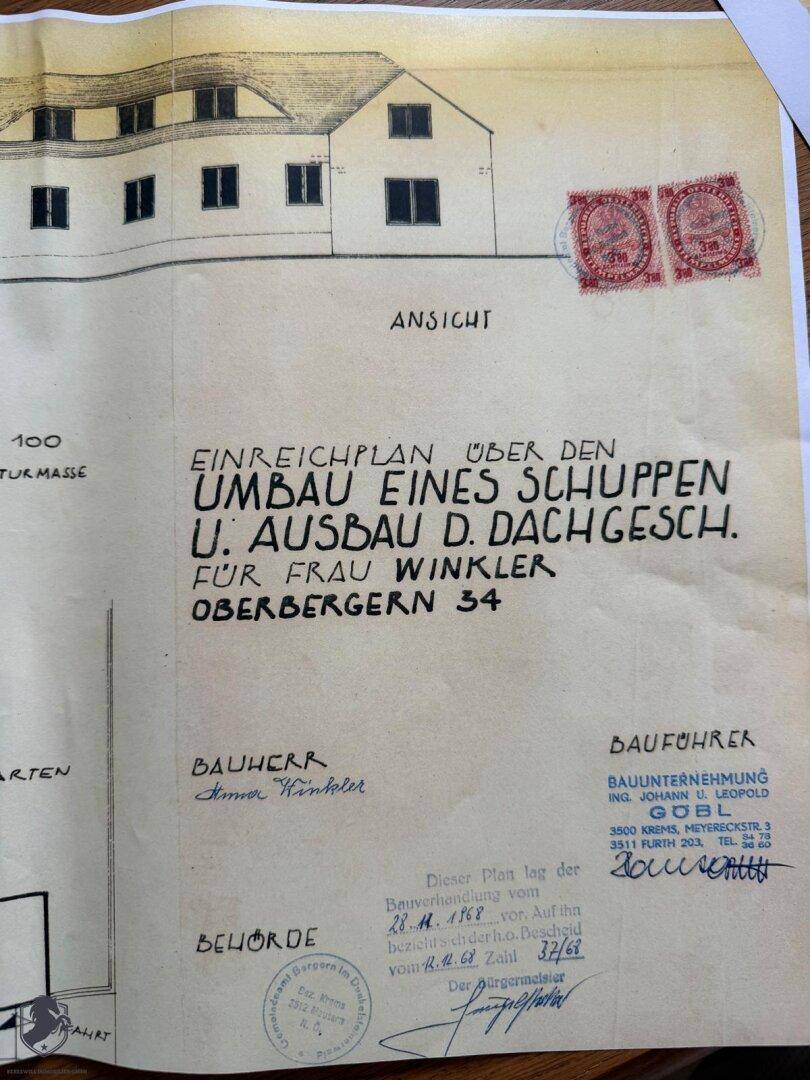 3.80 3.80
3.80
3.80 3.80
3.80 3.80
3.80
3.80 3.80
ANSICHT
100
TURMASSE
EINREICHPLAN ÜBER DEN
UMBAU EINES SCHUPPEN
U. AUSBAU D. DACHGESCH.
FÜR FRAU WINKLER
OBERBERGERN 34
ARTEN
BAUHERR
Anna Winkler
BAUFÜHRER
BAUUNTERNEHMUNG
ING. JOHANN U. LEOPOLD
GÖBL
3500 KREMS, MEYERECKSTR. 3
3511 FURTH 203, TEL. 84 78
36 60
BEHÖRDE
Dieser Plan lag der
Bauverhandlung vom
28. 11. 1968 vor. Auf ihn
bezieht sich der h.o. Bescheid
vom 12.12.68 Zahl 37/68
Der Bürgermeister
Gemeindeamt Bergern im Dunkelsteinerwald
Bez. Krems
3512 Mautern
N. Ö.
FAHRT